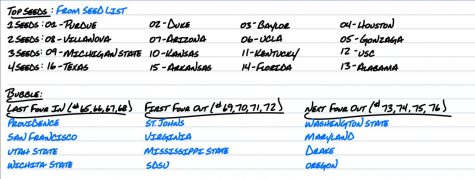 TOP SEEDS: FROM SEED LIST
1 SEEDS: 01- PURDUE 02- DUKE 03- BAYLOR 04- HOUSTON
2 SEEDS: 08- VILLANOVA 07- ARIZONA 06- UCLA 05- GONZAGA
3 SEEDS: 09- MICHIGAN STATE 10- KANSAS 11- KENTUCKY 12- USC
4 SEEDS: 16- TEXAS 15- ARKANSAS 14- FLORIDA 13- ALABAMA
BUBBLE:
LAST FOUR IN (#65,66,67,68) FIRST FOUR OUT (#69,70,71,72) NEXT FOUR OUT (#73,74,75,76)
PROVIDENCE ST. JOHNS WASHINGTON STATE
SAN FRANCISCO VIRGINIA MARYLAND
UTAH STATE MISSISSIPPI STATE DRAKE
WICHITA STATE SDSU OREGON